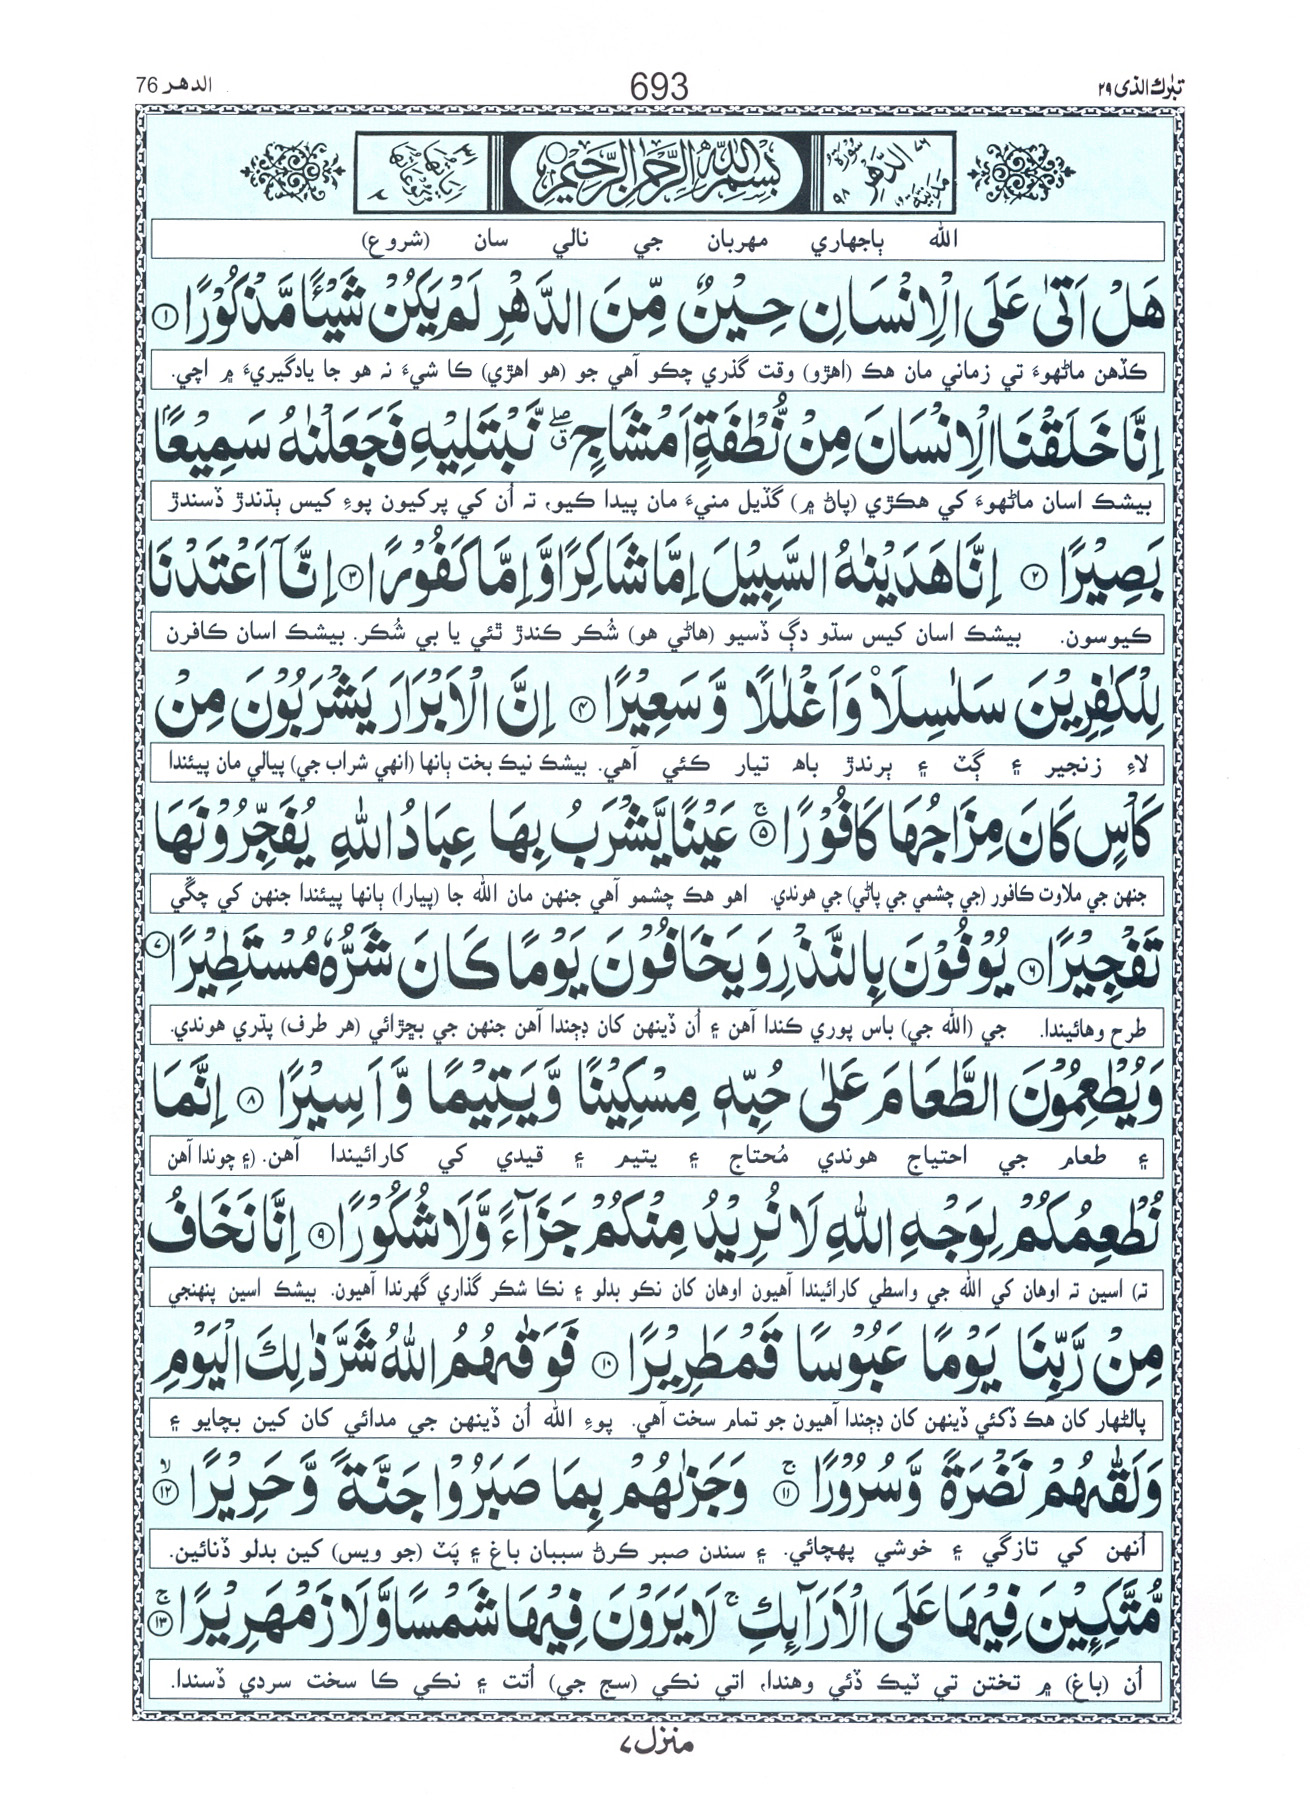 تبٰرك الذى ٢٩
693
الدهر 76
سُوْرَةُ الدَّهْرِ مَدَنِيَّةٌ ٩٨
بِسْمِ اللّٰهِ الرَّحْمٰنِ الرَّحِيْمِ
الله ٻاجهاري مهربان جي نالي سان (شروع)
هَلْ اَتٰى عَلَى الْاِنْسَانِ حِيْنٌ مِّنَ الدَّهْرِ لَمْ يَكُنْ شَيْـًٔا مَّذْكُوْرًا ۝١
ڪڏهن ماڻهوءَ تي زماني مان هڪ (اهڙو) وقت گذري چڪو آهي جو (هو اهڙي) ڪا شيءَ نہ هو جا يادگيريءَ ۾ اچي.
اِنَّا خَلَقْنَا الْاِنْسَانَ مِنْ نُّطْفَةٍ اَمْشَاجٍ ۖ نَّبْتَلِيْهِ فَجَعَلْنٰهُ سَمِيْعًۢا
بيشڪ اسان ماڻهوءَ کي هڪڙي (پاڻ ۾) گڏيل منيءَ مان پيدا ڪيو، تہ اُن کي پرکيون پوءِ کيس ٻڌندڙ ڏسندڙ
بَصِيْرًا ۝٢ اِنَّا هَدَيْنٰهُ السَّبِيْلَ اِمَّا شَاكِرًا وَّاِمَّا كَفُوْرًا ۝٣ اِنَّآ اَعْتَدْنَا
ڪيوسون. بيشڪ اسان کيس سڌو دڳ ڏسيو (هاڻي هو) شُڪر ڪندڙ ٿئي يا بي شُڪر. بيشڪ اسان ڪافرن
لِلْكٰفِرِيْنَ سَلٰسِلَا۟ وَاَغْلٰلًا وَّسَعِيْرًا ۝٤ اِنَّ الْاَبْرَارَ يَشْرَبُوْنَ مِنْ
لاءِ زنجير ۽ ڳٽ ۽ ٻرندڙ باه تيار ڪئي آهي. بيشڪ نيڪ بخت ٻانها (انهي شراب جي) پيالي مان پيئندا
كَاْسٍ كَانَ مِزَاجُهَا كَافُوْرًا ۝٥ۚ عَيْنًا يَّشْرَبُ بِهَا عِبَادُ اللّٰهِ يُفَجِّرُوْنَهَا
جنهن جي ملاوت ڪافور (جي چشمي جي پاڻي) جي هوندي. اهو هڪ چشمو آهي جنهن مان الله جا (پيارا) ٻانها پيئندا جنهن کي چڱي
تَفْجِيْرًا ۝٦ يُوْفُوْنَ بِالنَّذْرِ وَيَخَافُوْنَ يَوْمًا كَانَ شَرُّهٗ مُسْتَطِيْرًا ۝٧
طرح وهائيندا. جي (الله جي) باس پوري ڪندا آهن ۽ اُن ڏينهن کان ڊڄندا آهن جنهن جي بڇڙائي (هر طرف) پڌري هوندي.
وَيُطْعِمُوْنَ الطَّعَامَ عَلٰى حُبِّهٖ مِسْكِيْنًا وَّيَتِيْمًا وَّاَسِيْرًا ۝٨ اِنَّمَا
۽ طعام جي احتياج هوندي مُحتاج ۽ يتيم ۽ قيدي کي کارائيندا آهن. (۽ چوندا آهن
نُطْعِمُكُمْ لِوَجْهِ اللّٰهِ لَا نُرِيْدُ مِنْكُمْ جَزَآءً وَّلَا شُكُوْرًا ۝٩ اِنَّا نَخَافُ
تہ) اسين تہ اوهان کي الله جي واسطي کارائيندا آهيون اوهان کان نڪو بدلو ۽ نڪا شڪر گذاري گهرندا آهيون. بيشڪ اسين پنهنجي
مِنْ رَّبِّنَا يَوْمًا عَبُوْسًا قَمْطَرِيْرًا ۝١٠ فَوَقٰىهُمُ اللّٰهُ شَرَّ ذٰلِكَ الْيَوْمِ
پالڻهار کان هڪ ڏکئي ڏينهن کان ڊڄندا آهيون جو تمام سخت آهي. پوءِ الله اُن ڏينهن جي مدائي کان کين بچايو ۽
وَلَقّٰىهُمْ نَضْرَةً وَّسُرُوْرًا ۝١١ۚ وَجَزٰىهُمْ بِمَا صَبَرُوْا جَنَّةً وَّحَرِيْرًا ۝١٢ۙ
اُنهن کي تازگي ۽ خوشي پهچائي. ۽ سندن صبر ڪرڻ سببان باغ ۽ پَٽ (جو ويس) کين بدلو ڏنائين.
مُّتَّكِـِٕيْنَ فِيْهَا عَلَى الْاَرَآئِكِ ۚ لَا يَرَوْنَ فِيْهَا شَمْسًا وَّلَا زَمْهَرِيْرًا ۝١٣ۚ
اُن (باغ) ۾ تختن تي ٽيڪ ڏئي وهندا، اتي نڪي (سج جي) اُتت ۽ نڪي ڪا سخت سردي ڏسندا.
منزل ٧